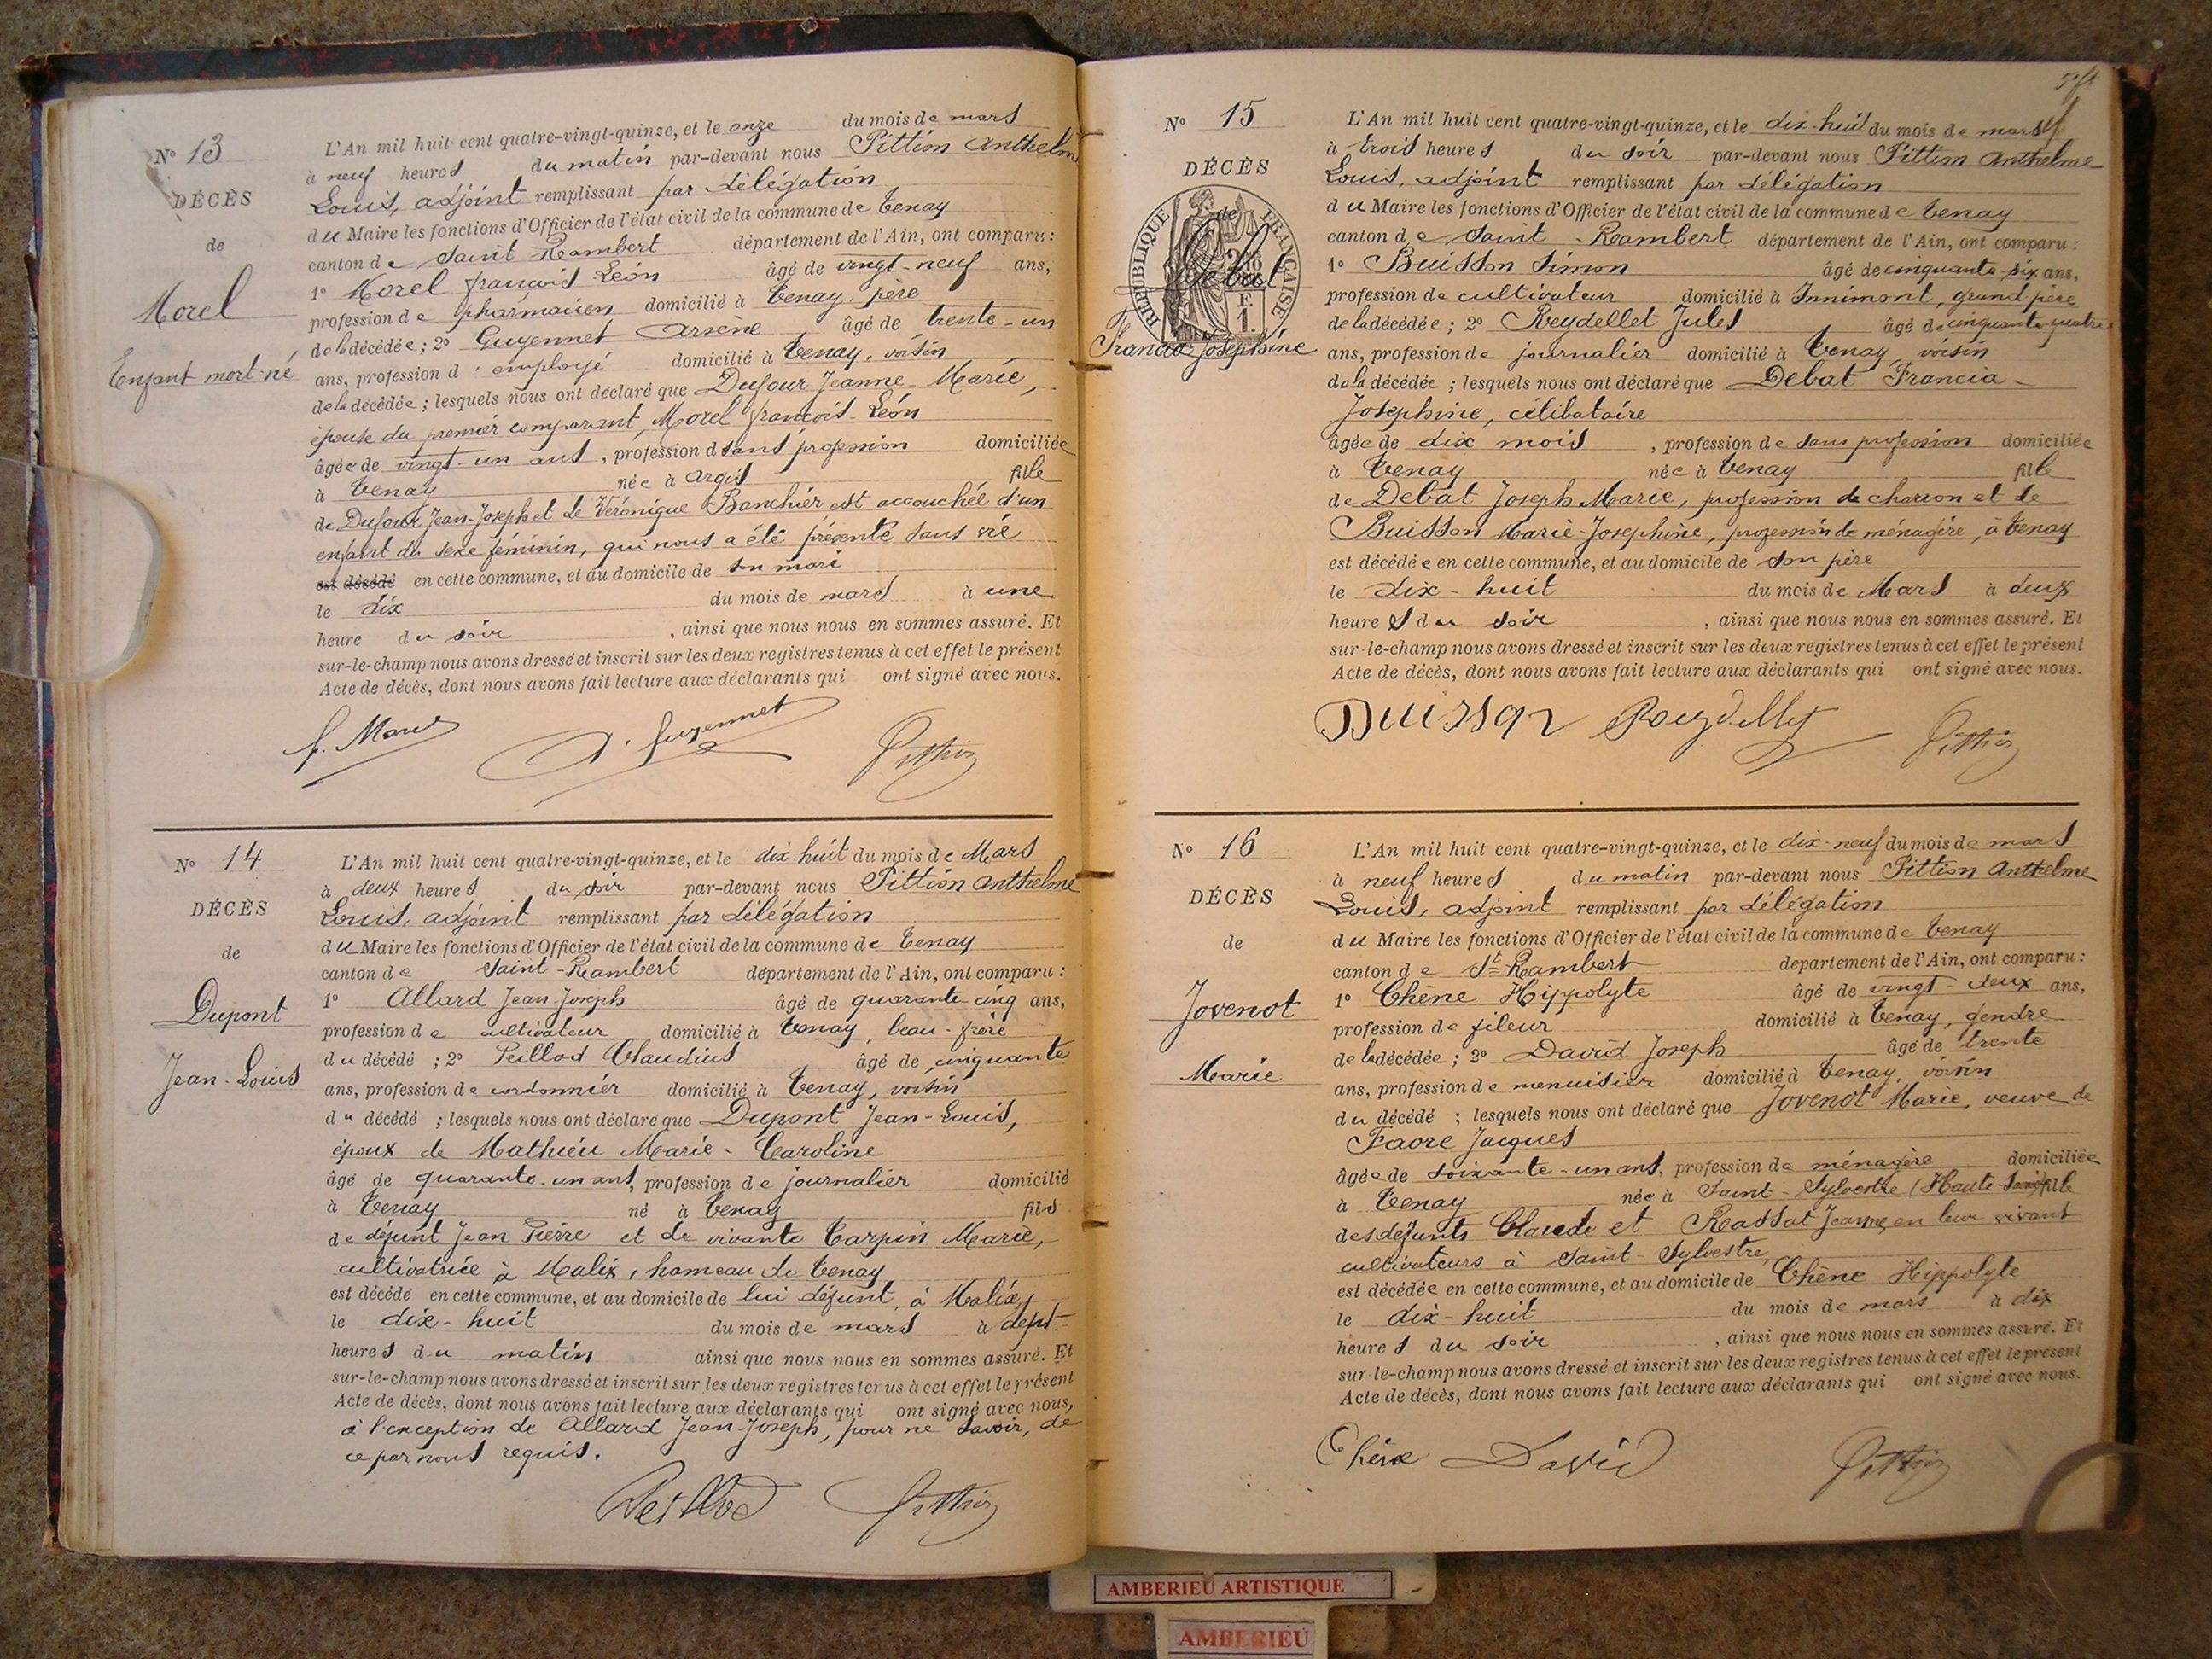 N° 13
DÉCÈS
de
Morel
Enfant mort-né
L'An mil huit cent quatre-vingt-quinze, et le onze du mois de mars
à neuf heures du matin par-devant nous Pittion Anthelme
Louis, adjoint remplissant par délégation
du Maire les fonctions d'Officier de l'état civil de la commune de Tenay
canton de Saint-Rambert département de l'Ain, ont comparu :
1° Morel françois Léon âgé de vingt-neuf ans,
profession de pharmacien domicilié à Tenay, père
de la décédée ; 2° Guyennet Arsène âgé de trente-un
ans, profession d'employé domicilié à Tenay, voisin
de la décédée ; lesquels nous ont déclaré que Dufour Jeanne-Marie,
épouse du premier comparant, Morel françois-Léon
âgée de vingt-un ans, profession d sans profession domiciliée
à Tenay née à Argis fille
de Dufour Jean-Joseph et de Véronique Banchier est accouchée d'un
enfant du sexe féminin, qui nous a été présenté sans vie
est décédé en cette commune, et au domicile de son mari
le dix du mois de mars à une
heure du soir , ainsi que nous nous en sommes assuré. Et
sur-le-champ nous avons dressé et inscrit sur les deux registres tenus à cet effet le présent
Acte de décès, dont nous avons fait lecture aux déclarants qui ont signé avec nous.
A. Guyennet Pittion
N° 14
DÉCÈS
de
Dupont
Jean-Louis
L'An mil huit cent quatre-vingt-quinze, et le dix-huit du mois de Mars
à deux heures du soir par-devant nous Pittion Anthelme
Louis, adjoint remplissant par délégation
du Maire les fonctions d'Officier de l'état civil de la commune de Tenay
canton de Saint-Rambert département de l'Ain, ont comparu :
1° Allard Jean-Joseph âgé de quarante-cinq ans,
profession de cultivateur domicilié à Tenay, beau-frère
du décédé ; 2° Peillod Claudius âgé de cinquante
ans, profession de cordonnier domicilié à Tenay, voisin
du décédé ; lesquels nous ont déclaré que Dupont Jean-Louis,
époux de Mathieu Marie-Caroline
âgé de quarante-un ans, profession de journalier domicilié
à Tenay né à Tenay fils
de défunt Jean Pierre et de vivante Carpin Marie,
cultivatrice à Malix, hameau de Tenay
est décédé en cette commune, et au domicile de lui défunt, à Malix,
le dix-huit du mois de mars à sept
heures du matin ainsi que nous nous en sommes assuré. Et
sur-le-champ nous avons dressé et inscrit sur les deux registres tenus à cet effet le présent
Acte de décès, dont nous avons fait lecture aux déclarants qui ont signé avec nous,
à l'exception de Allard Jean-Joseph, pour ne savoir, de
ce par nous requis.
Peillod Pittion
N° 15
DÉCÈS
de
RÉPUBLIQUE FRANÇAISE
Debat
Francia-Josephine
L'An mil huit cent quatre-vingt-quinze, et le dix-huit du mois de mars
à trois heures du soir par-devant nous Pittion Anthelme
Louis, adjoint remplissant par délégation
du Maire les fonctions d'Officier de l'état civil de la commune de Tenay
canton de Saint-Rambert département de l'Ain, ont comparu :
1° Buisson Simon âgé de cinquante-six ans,
profession de cultivateur domicilié à Innimont, grand père
de la décédée ; 2° Reydellet Jules âgé de cinquante-quatre
ans, profession de journalier domicilié à Tenay, voisin
de la décédée ; lesquels nous ont déclaré que Debat Francia-
Josephine, célibataire
âgée de dix mois , profession de sans profession domiciliée
à Tenay née à Tenay fille
de Debat Joseph Marie, profession de charron et de
Buisson Marie-Josephine, profession de ménagère, à Tenay
est décédée en cette commune, et au domicile de son père
le dix-huit du mois de Mars à deux
heures du soir , ainsi que nous nous en sommes assuré. Et
sur-le-champ nous avons dressé et inscrit sur les deux registres tenus à cet effet le présent
Acte de décès, dont nous avons fait lecture aux déclarants qui ont signé avec nous.
Buisson Reydellet Pittion
N° 16
DÉCÈS
de
Jovenot
Marie
L'An mil huit cent quatre-vingt-quinze, et le dix-neuf du mois de mars
à neuf heures du matin par-devant nous Pittion Anthelme
Louis, adjoint remplissant par délégation
du Maire les fonctions d'Officier de l'état civil de la commune de Tenay
canton de St-Rambert département de l'Ain, ont comparu :
1° Chêne Hippolyte âgé de vingt-deux ans,
profession de fileur domicilié à Tenay, gendre
de la décédée ; 2° David Joseph âgé de trente
ans, profession de menuisier domicilié à Tenay, voisin
du décédé ; lesquels nous ont déclaré que Jovenot Marie, veuve de
Favre Jacques
âgée de soixante-un ans, profession de ménagère domiciliée
à Tenay née à Saint-Sylvestre (Haute-Savoie) fille
des défunts Claude et Rassat Jeanne, en leur vivant
cultivateurs à Saint-Sylvestre
est décédée en cette commune, et au domicile de Chêne Hippolyte
le dix-huit du mois de mars à dix
heures du soir , ainsi que nous nous en sommes assuré. Et
sur-le-champ nous avons dressé et inscrit sur les deux registres tenus à cet effet le présent
Acte de décès, dont nous avons fait lecture aux déclarants qui ont signé avec nous.
Chêne David Pittion
AMBERIEU ARTISTIQUE
AMBERIEU